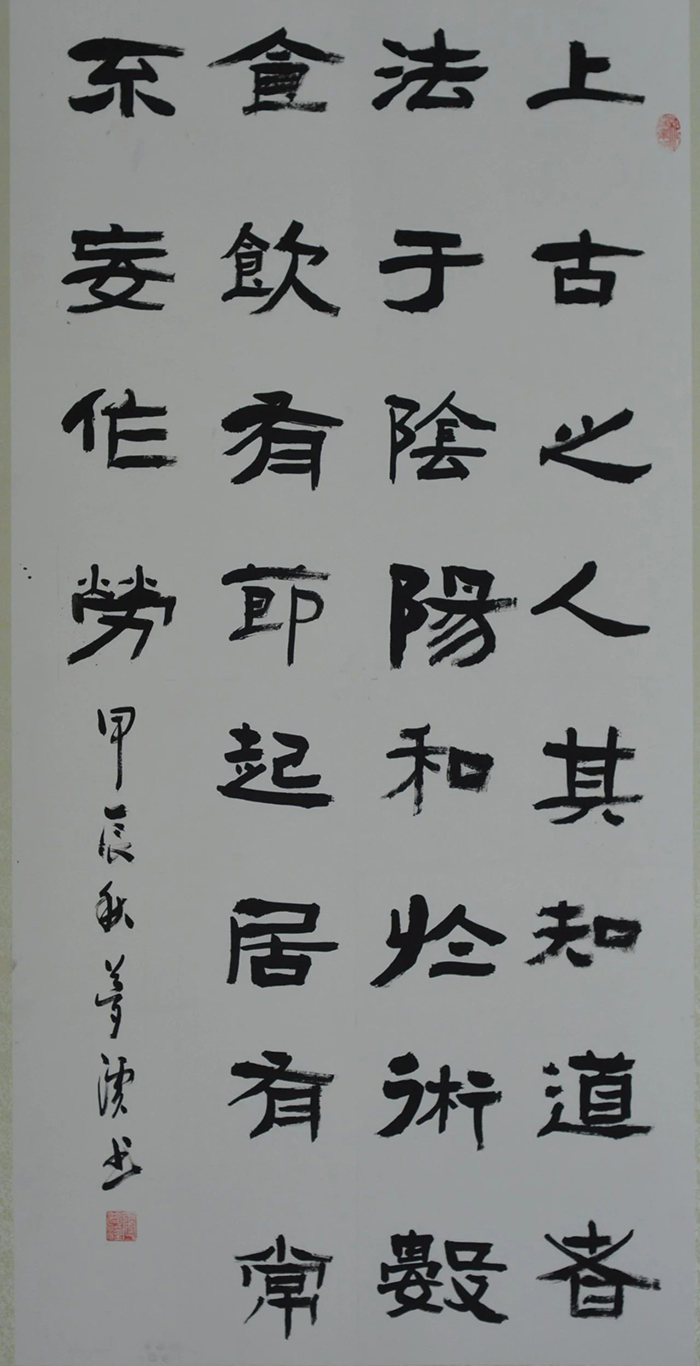 上古之人其知道者
法于陰陽和於術數
食飲有節起居有常
不妄作勞
甲辰秋夢书